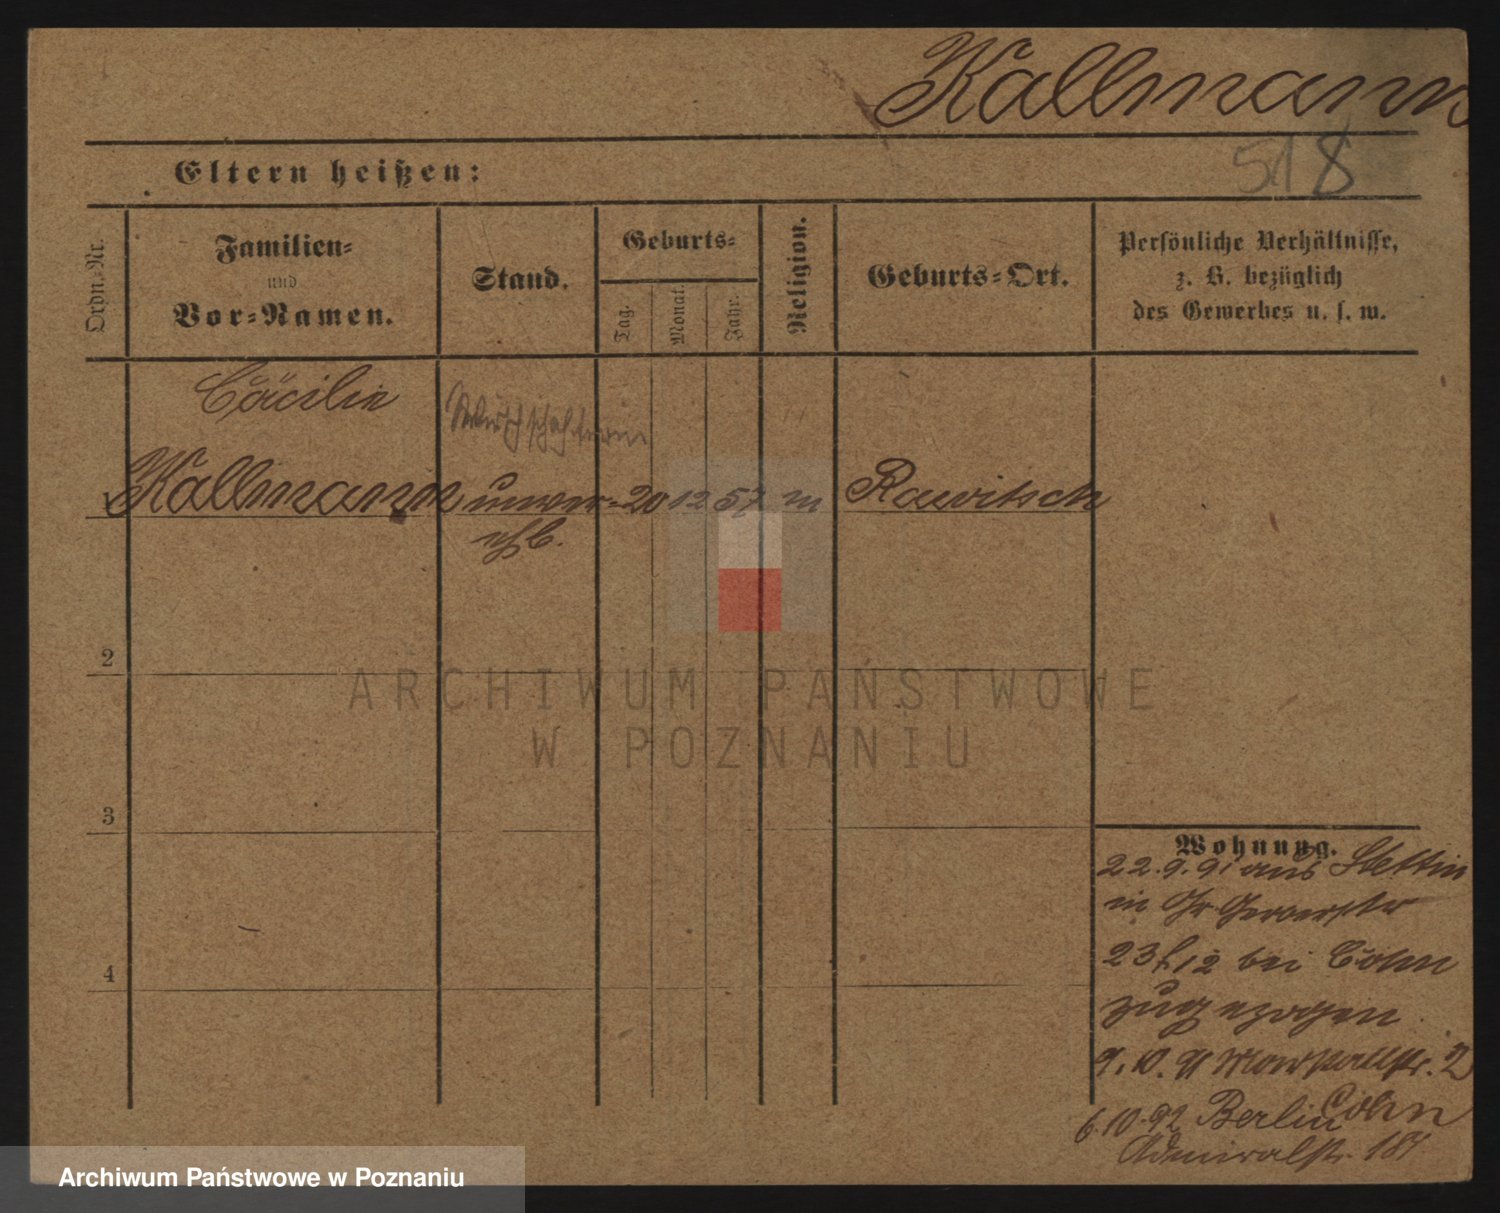 Kallmann
518
Eltern heißen:
Ordn.-Nr.
Familien-
und
Vor-Namen.
Stand.
Geburts-
Tag.
Monat.
Jahr.
Religion.
Geburts-Ort.
Persönliche Verhältnisse,
z. B. bezüglich
des Gewerbes u. s. w.
Cäcilie
Wirthschafterin
1 Kallmann unver- 20 12 57 m Rawitsch
ehl.
2
3
4
Wohnung.
22.9.91 aus Stettin
in Gr Gerberstr
23 12 bei Cohn
zugezogen
9.10.91 Marstallstr. 2
Cohn
6.10.92 Berlin
Admiralstr. 18
ARCHIWUM PAŃSTWOWE
W POZNANIU
Archiwum Państwowe w Poznaniu